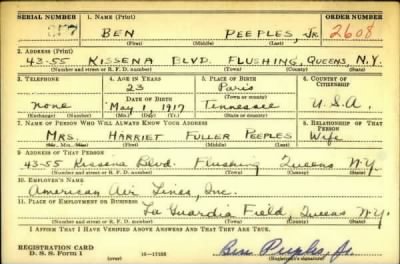 SERIAL NUMBER 1. NAME (Print) ORDER NUMBER
BEN PEEPLES, JR. 2608
(First) (Middle) (Last)
2. ADDRESS (Print)
43-55 KISSENA BLVD. FLUSHING, QUEENS, N.Y.
(Number and street or R. F. D. number) (Town) (County) (State)
3. TELEPHONE 4. AGE IN YEARS 5. PLACE OF BIRTH 6. COUNTRY OF CITIZENSHIP
23 Paris
DATE OF BIRTH (Town or county)
none May 1, 1917 Tennessee U.S.A.
(Exchange) (Number) (Mo.) (Day) (Yr.) (State or country)
7. NAME OF PERSON WHO WILL ALWAYS KNOW YOUR ADDRESS 8. RELATIONSHIP OF THAT PERSON
MRS. HARRIET FULLER PEEPLES Wife
(Mr., Mrs., Miss) (First) (Middle) (Last)
9. ADDRESS OF THAT PERSON
43-55 Kissena Blvd. Flushing Queens N.Y.
(Number and street or R. F. D. number) (Town) (County) (State)
10. EMPLOYER'S NAME
American Air Lines, Inc.
11. PLACE OF EMPLOYMENT OR BUSINESS
La Guardia Field, Queens N.Y.
(Number and street or R. F. D. number) (Town) (County) (State)
I AFFIRM THAT I HAVE VERIFIED ABOVE ANSWERS AND THAT THEY ARE TRUE.
REGISTRATION CARD
D. S. S. Form 1 Ben Peeples Jr.
(Registrant's signature)